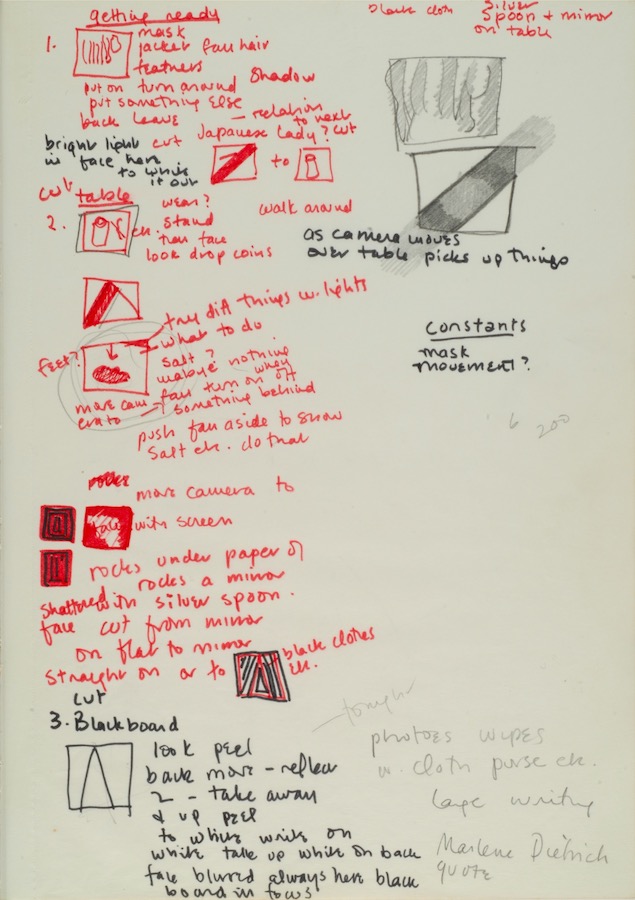 getting ready
black cloth
silver
spoon + mirror
on table
1.
mask
jacket fan hair
feathers
put on turn around shadow
put something else
back leave
— relation
to next
bright light
in face here
to white
it out
cut Japanese lady? cut
to
cut table
2.
wear?
stand
fan face
look drop coins
walk around
as camera moves
over table picks up things
try diff things w. lights
what to do
feet?
salt?
nothing
fan turn on off
something behind
push fan aside to show
salt etc. do that
constants
mask
movement?
6
200
move camera to
with screen
rocks under paper of
rocks a mirror
shattered with silver spoon.
face cut from mirror
on flat to mirror
straight on or to
black clothes
etc.
cut
3. Blackboard
look peel
back more -
2 - take away
& up peel
to white write on
white take up white on back
face blurred always here black
board in focus
tonight
photoes wipes
w. cloth purse etc.
large writing
Marlene Dietrich
quote